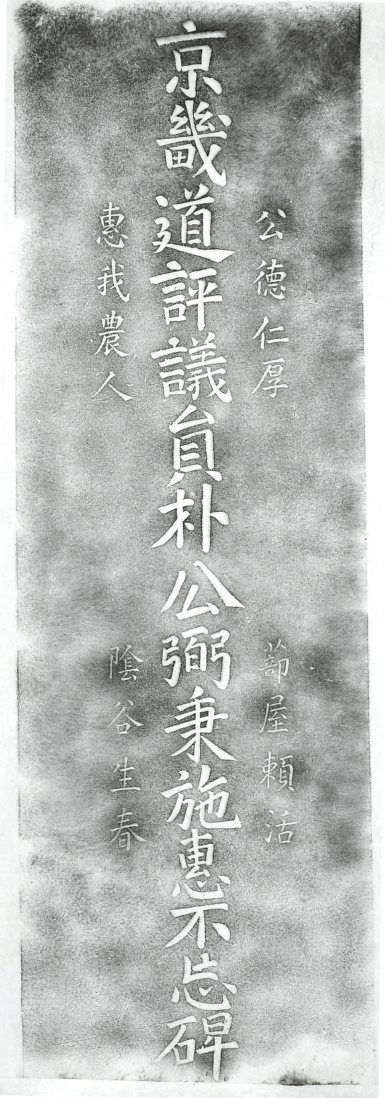 公德仁厚
蔀屋賴活
京畿道評議員朴公弼秉施惠不忘碑
惠我農人
陰谷生春